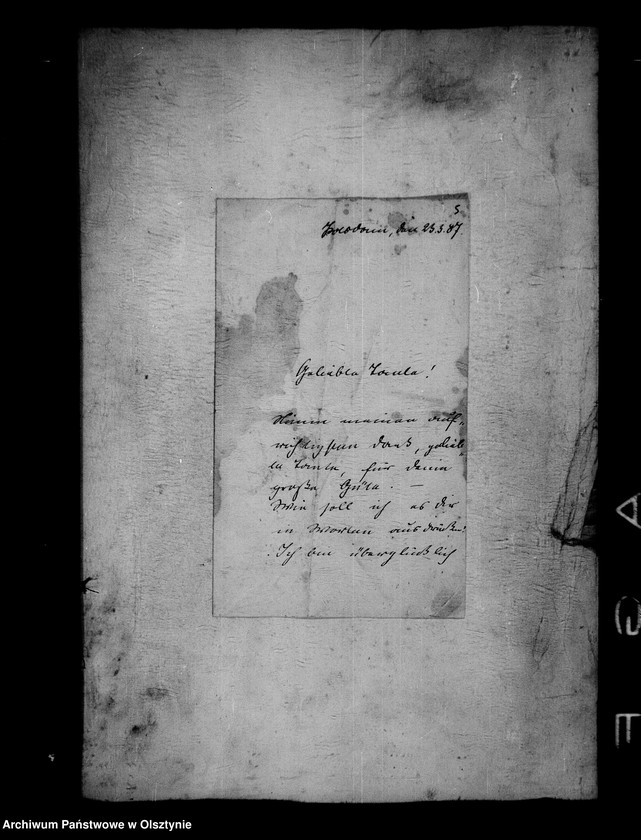 5
den 23.3.87.
Geliebte Tante!
Nimm meinen auf-
richtigsten Dank, gelieb-
te Tante, für deine
große Güte. —
Wie soll ich es dir
in Worten ausdrücken!
Ich bin überglücklich
AGE
Archiwum Państwowe w Olsztynie